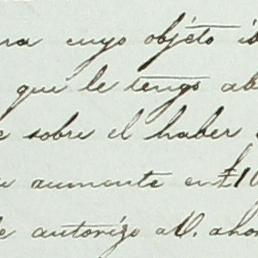 na cuyo objeto
que le tengo ab
sobre el haber
aumente en £10
autorizo a V. ahor